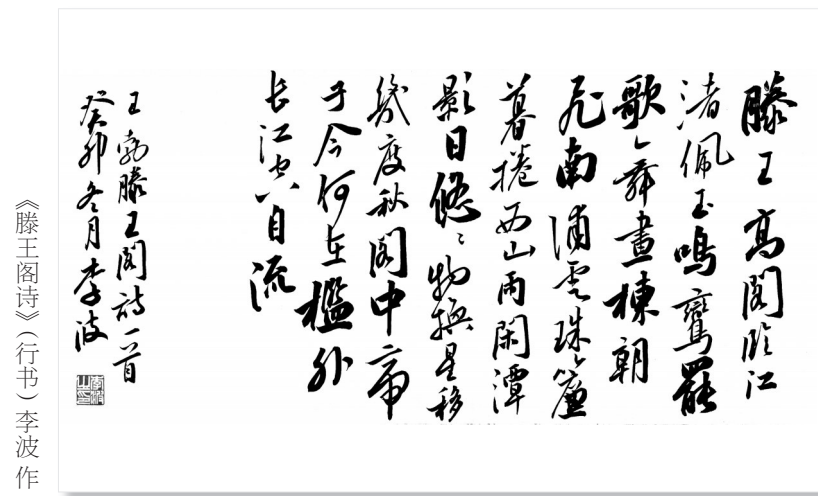 滕王高閣临江
渚佩玉鳴鸞罷
歌舞畫棟朝
飞南浦雲珠簾
暮捲西山雨閑潭
影日悠〻物換星移
幾度秋閣中帝
子今何在檻外
长江空自流
王勃滕王阁诗一首
癸卯冬月李波
《滕王阁诗》（行书）李波 作